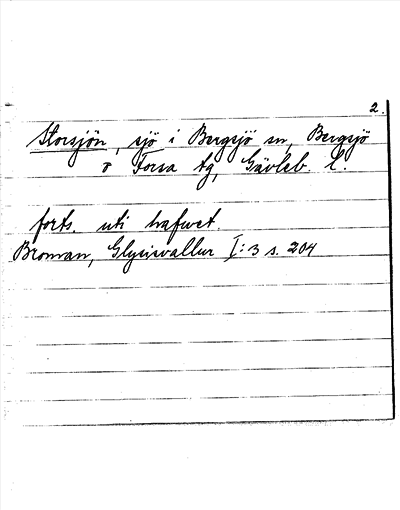 2.
Storsjön, sjö i Bergsjö sn, Bergsjö
o Forsa tg, Gävleb. l.
forts. uti hafwet
Broman, Glysisvallur I:3 s. 204